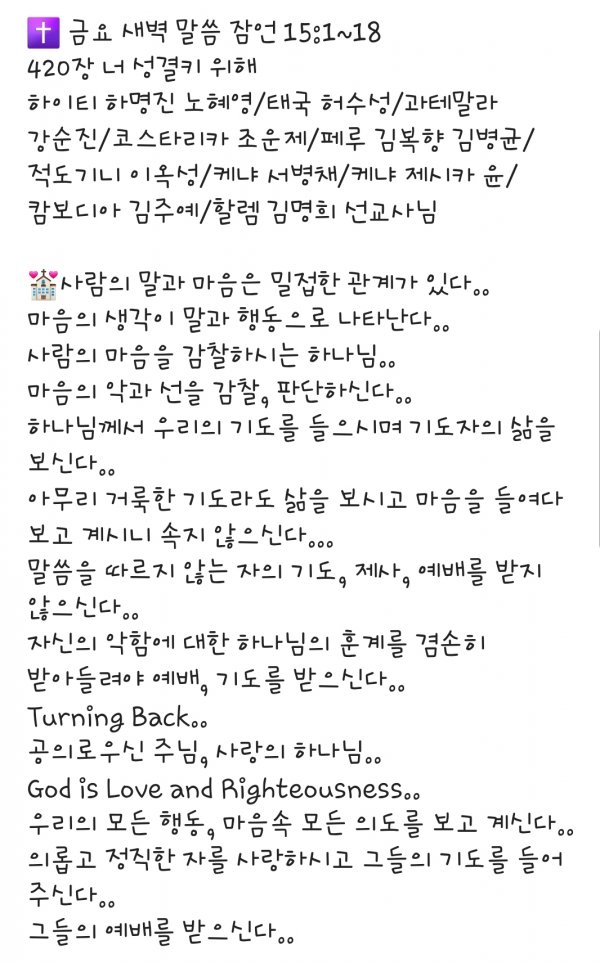 ✝️ 금요 새벽 말씀 잠언 15:1~18
420장 너 성결키 위해
하이티 하명진 노혜영/태국 허수성/과테말라
강순진/코스타리카 조운제/페루 김복향 김병균/
적도기니 이옥성/케냐 서병채/케냐 제시카 윤/
캄보디아 김주예/할렘 김명희 선교사님
💒사람의 말과 마음은 밀접한 관계가 있다..
마음의 생각이 말과 행동으로 나타난다..
사람의 마음을 감찰하시는 하나님..
마음의 악과 선을 감찰, 판단하신다..
하나님께서 우리의 기도를 들으시며 기도자의 삶을
보신다..
아무리 거룩한 기도라도 삶을 보시고 마음을 들여다
보고 계시니 속지 않으신다...
말씀을 따르지 않는 자의 기도, 제사, 예배를 받지
않으신다..
자신의 악함에 대한 하나님의 훈계를 겸손히
받아들려야 예배, 기도를 받으신다..
Turning Back..
공의로우신 주님, 사랑의 하나님..
God is Love and Righteousness..
우리의 모든 행동, 마음속 모든 의도를 보고 계신다..
의롭고 정직한 자를 사랑하시고 그들의 기도를 들어
주신다..
그들의 예배를 받으신다..